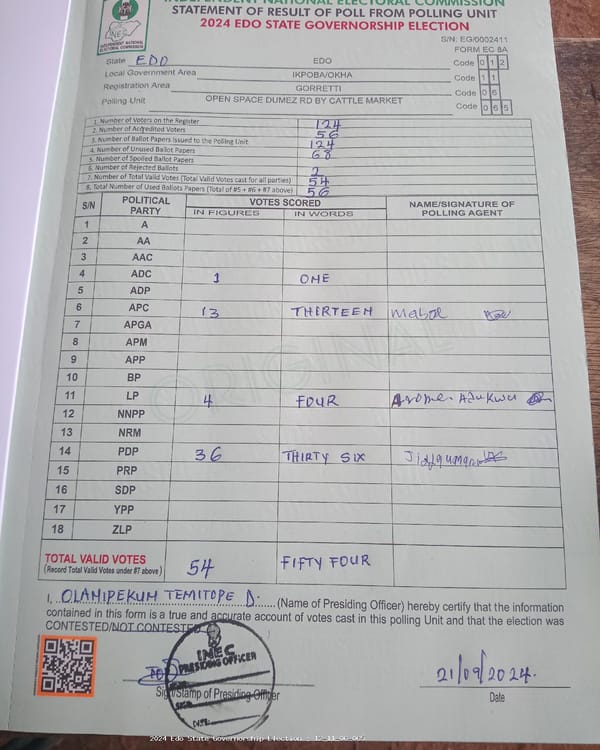 INDEPENDENT NATIONAL ELECTORAL COMMISSION
STATEMENT OF RESULT OF POLL FROM POLLING UNIT
2024 EDO STATE GOVERNORSHIP ELECTION
INEC
INDEPENDENT NATIONAL
ELECTORAL COMMISSION
S/N: EG/0002411
FORM EC 8A
State EDO EDO Code 0 1 2
Local Government Area IKPOBA/OKHA Code 1 1
Registration Area GORRETTI Code 0 6
Polling Unit OPEN SPACE DUMEZ RD BY CATTLE MARKET Code 0 6 5
1. Number of Voters on the Register 124
2. Number of Accredited Voters 56
3. Number of Ballot Papers Issued to the Polling Unit 124
4. Number of Unused Ballot Papers 68
5. Number of Spoiled Ballot Papers
6. Number of Rejected Ballots 2
7. Number of Total Valid Votes (Total Valid Votes cast for all parties) 54
8. Total Number of Used Ballots Papers (Total of #5 + #6 + #7 above) 56
S/N POLITICAL PARTY VOTES SCORED NAME/SIGNATURE OF POLLING AGENT
IN FIGURES IN WORDS
1 A
2 AA
3 AAC
4 ADC 1 ONE
5 ADP
6 APC 13 THIRTEEN
7 APGA
8 APM
9 APP
10 BP
11 LP 4 FOUR
12 NNPP
13 NRM
14 PDP 36 THIRTY SIX
15 PRP
16 SDP
17 YPP
18 ZLP
ORIGINAL
TOTAL VALID VOTES 54 FIFTY FOUR
(Record Total Valid Votes under #7 above)
I, OLANIPEKUM TEMITOPE D. (Name of Presiding Officer) hereby certify that the information
contained in this form is a true and accurate account of votes cast in this polling Unit and that the election was
CONTESTED/NOT CONTESTED
INEC
PRESIDING OFFICER
SIGN:
DATE:
21/09/2024.
Sign/Stamp of Presiding Officer Date
2024 Edo State Governorship Election : 12_11_06_065